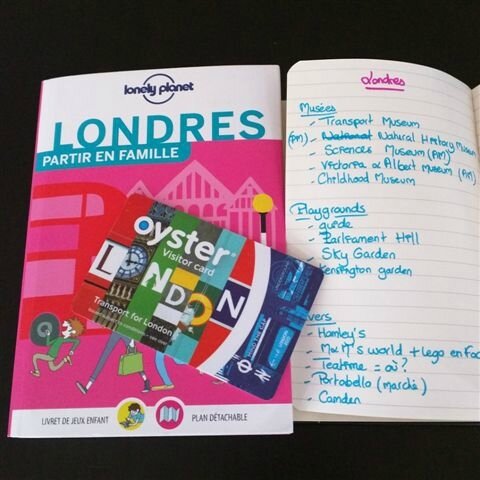 lonely planet
LONDRES
PARTIR EN FAMILLE
oyster
Visitor card
LONDON
Transport for London
LIVRET DE JEUX ENFANT
PLAN DÉTACHABLE
Londres
Musées
- Transport Museum
(PM) - National Natural History Museum
- Sciences Museum (PM)
- Victoria & Albert Museum (PM)
- Childhood Museum
Playgrounds
- guide
- Parliament Hill
- Sky Garden
- Kensington garden
vers
- Hamley's
- M&M's world + Lego en Fac
- Teatime = où?
- Portobello (marché)
- Camden